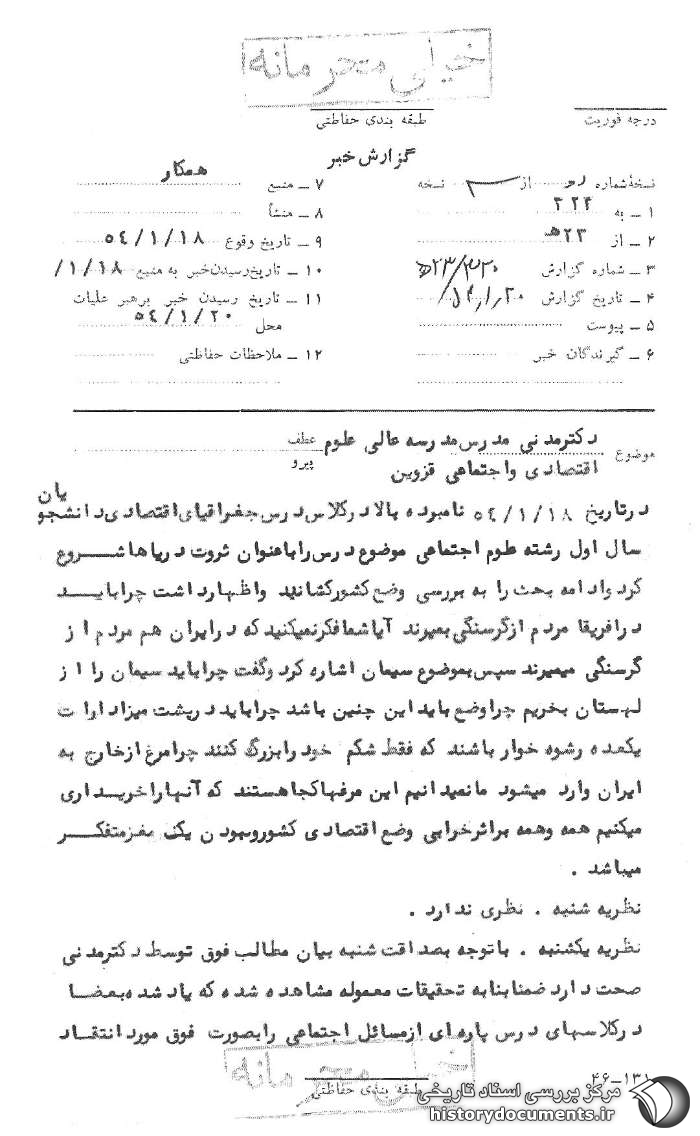 خیلی محرمانه
درجه فوریت
طبقه بندی حفاظتی
گزارش خبر
نسخهٔ شماره از نسخه
۱ ـ به ۳۲۲
۲ ـ از ۲۳ هـ
۳ ـ شماره گزارش
۴ ـ تاریخ گزارش
۵ ـ پیوست
۶ ـ گیرندگان خبر
۷ ـ منبع همکار
۸ ـ منشأ
۹ ـ تاریخ وقوع ۵۴/۱/۱۸
۱۰ ـ تاریخ رسیدن خبر به منبع ۱/۱۸/
۱۱ ـ تاریخ رسیدن خبر برهبر عملیات
محل ۵۴/۱/۲۰
۱۲ ـ ملاحظات حفاظتی
موضوع دکترمدنی مدرس مدرسه عالی علوم
اقتصادی و اجتماعی قزوین
عطف
پیرو
درتاریخ ۵۴/۱/۱۸ نامبرده بالا درکلاس درس جغرافیای اقتصادی دانشجویان
سال اول رشته علوم اجتماعی موضوع درس را باعنوان ثروت دریاها شروع
کرد وادامه بحث را به بررسی وضع کشورکشانید واظهارداشت چرا باید
درافریقا مردم ازگرسنگی بمیرند آیا شما فکرنمیکنید که درایران هم مردم از
گرسنگی میمیرند سپس بموضوع سیمان اشاره کرد وگفت چرا باید سیمان را از
لهستان بخریم چرا وضع باید این چنین باشد چرا باید درپشت میزادارات
یکعده رشوه خوار باشند که فقط شکم خود را بزرگ کنند چرا مرغ ازخارج به
ایران وارد میشود مانمیدانیم این مرغها کجا هستند که آنها را خریداری
میکنیم همه وهمه براثرخرابی وضع اقتصادی کشورونبودن یک مغزمتفکر
میباشد .
نظریه شنبه . نظری ندارد .
نظریه یکشنبه . باتوجه بصداقت شنبه بیان مطالب فوق توسط دکترمدنی
صحت دارد ضمنا بنابه تحقیقات معموله مشاهده شده که یاد شده بعضا
درکلاسهای درس پاره ای ازمسائل اجتماعی رابصورت فوق مورد انتقاد
خیلی محرمانه
طبقه بندی حفاظتی
۴۶-۱۳۱
مرکز بررسی اسناد تاریخی
historydocuments.ir